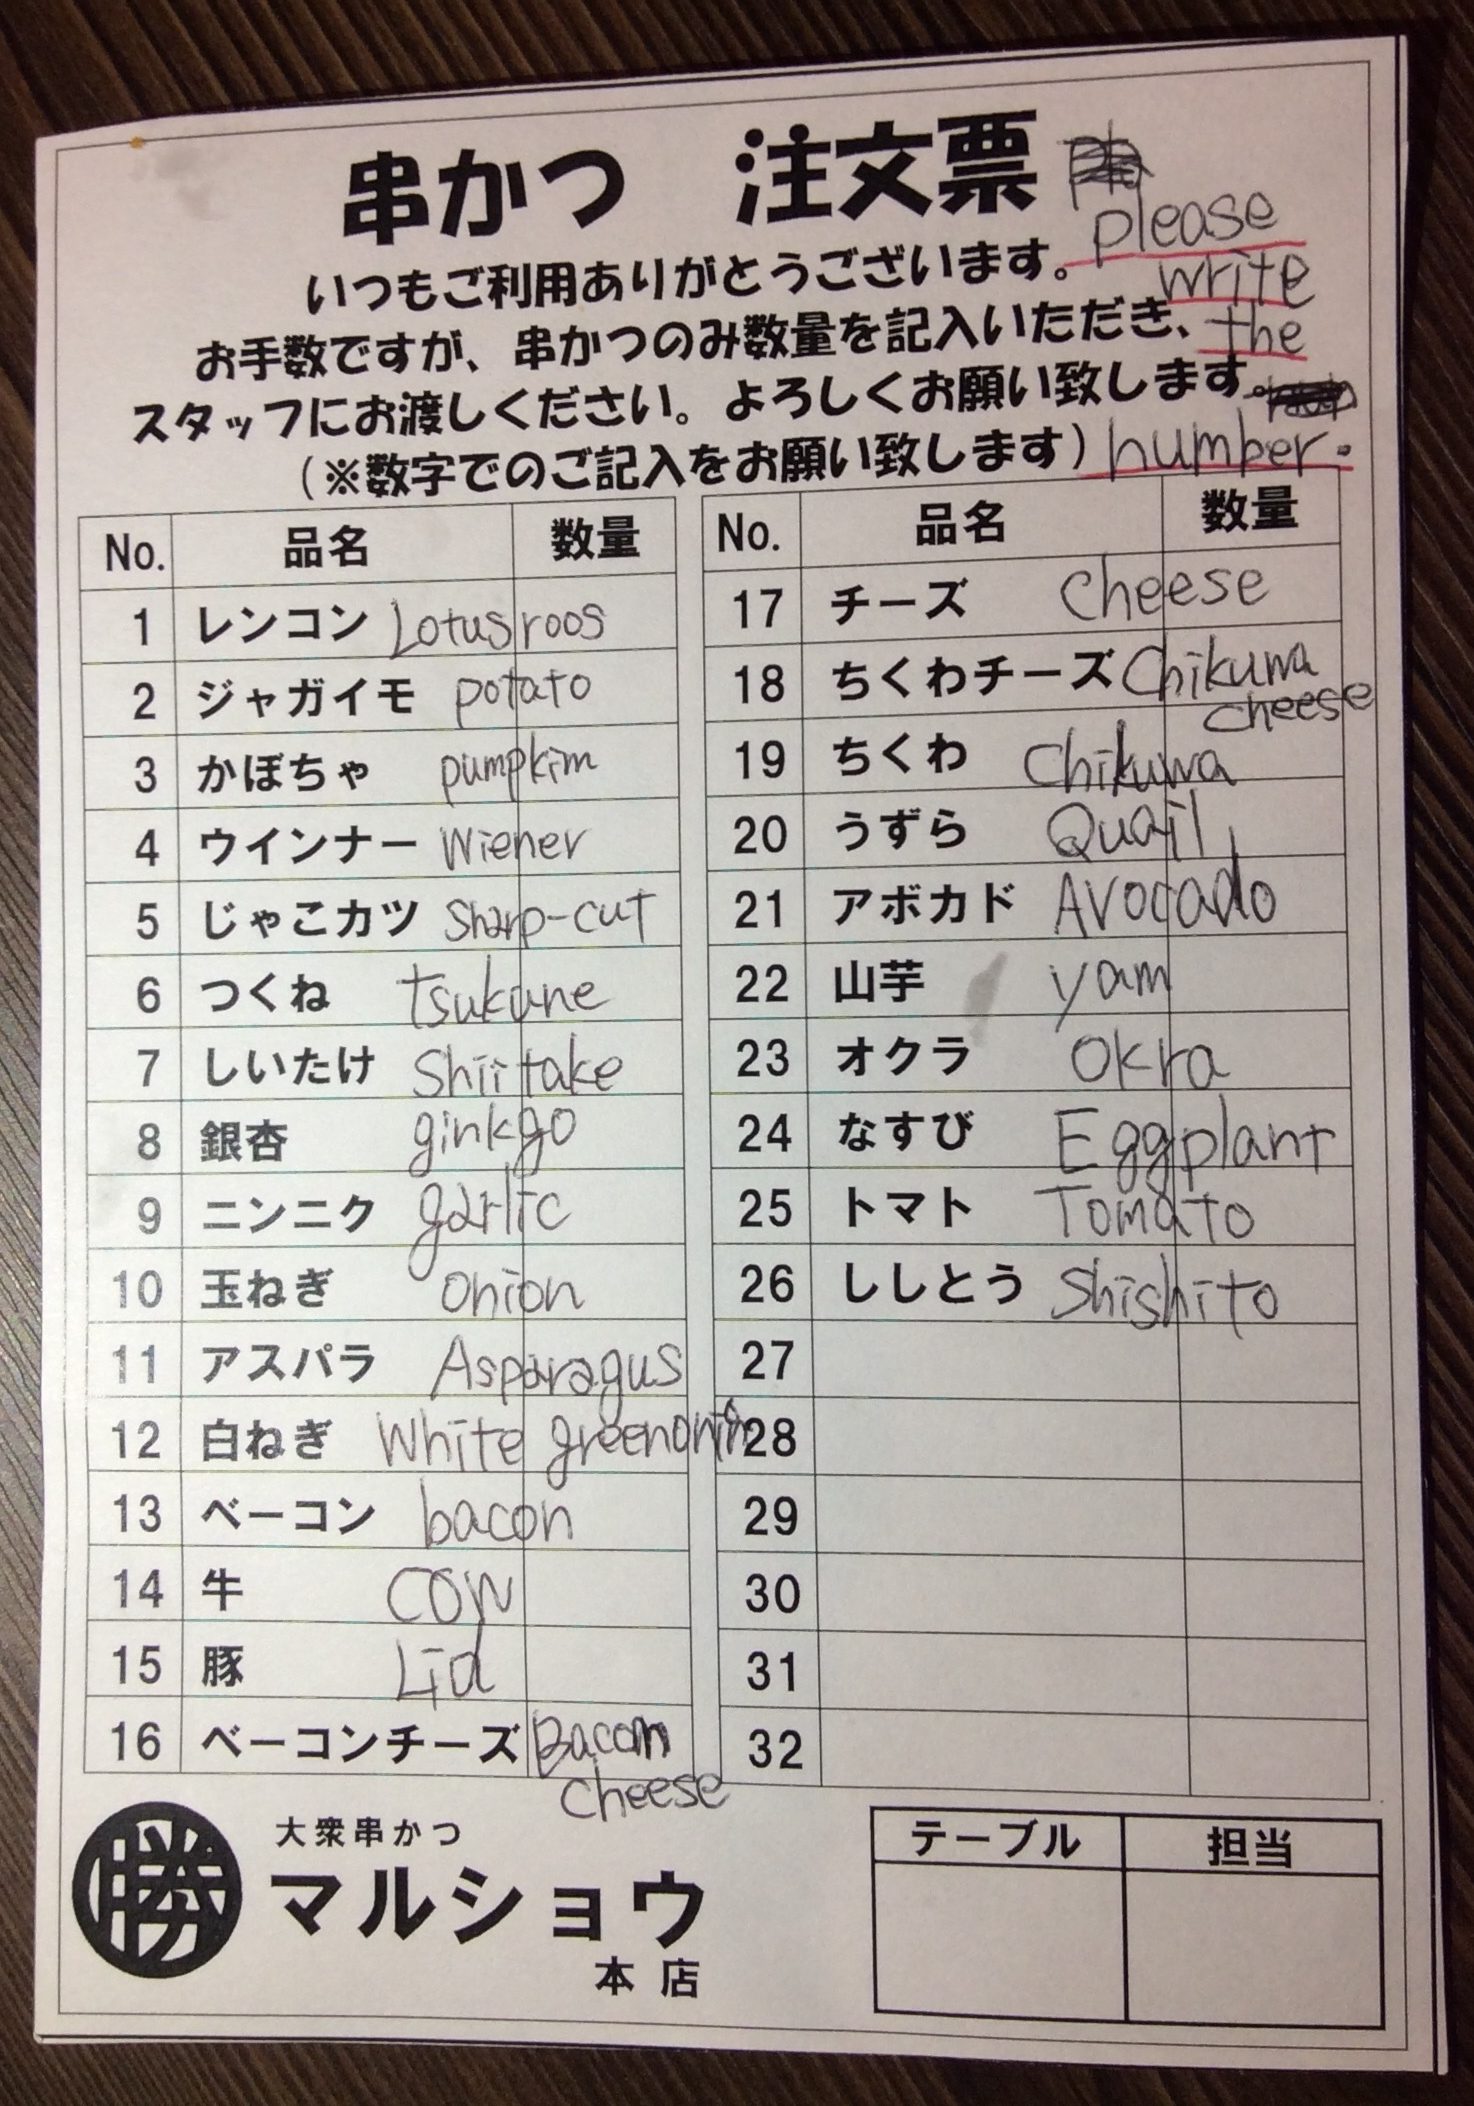 串かつ 注文票
please
いつもご利用ありがとうございます。
write
お手数ですが、串かつのみ数量を記入いただき、
the
スタッフにお渡しください。よろしくお願い致します。
(※数字でのご記入をお願い致します)
number.
No. 品名 数量
1 レンコン Lotus roos
2 ジャガイモ potato
3 かぼちゃ pumpkim
4 ウインナー Wiener
5 じゃこカツ Sharp-cut
6 つくね tsukune
7 しいたけ Shiitake
8 銀杏 ginkgo
9 ニンニク garlic
10 玉ねぎ onion
11 アスパラ Asparagus
12 白ねぎ White greenonin
13 ベーコン bacon
14 牛 COW
15 豚 Lid
16 ベーコンチーズ Bacom
cheese
No. 品名 数量
17 チーズ Cheese
18 ちくわチーズ Chikuwa
cheese
19 ちくわ Chikuwa
20 うずら Quail
21 アボカド Avocado
22 山芋 yam
23 オクラ Okra
24 なすび Eggplant
25 トマト Tomato
26 ししとう Shishito
27
28
29
30
31
32
勝
大衆串かつ
マルショウ
本店
テーブル 担当